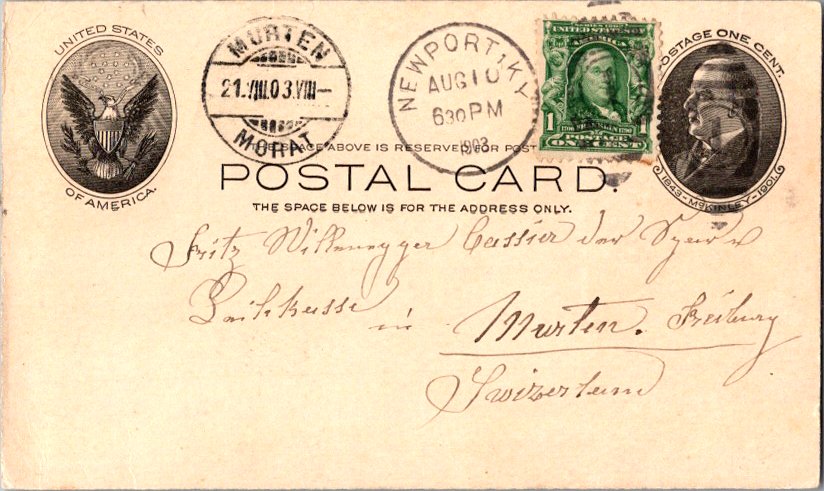 UNITED STATES
OF AMERICA.
MURTEN
21.VIII.03.VIII-
MORAT
NEWPORT, KY.
AUG 10
630 PM
1903
UNITED STATES OF
1
1706 FRANKLIN 1790
POSTAGE
ONE CENT
POSTAGE ONE CENT.
1843-McKINLEY-1901.
THE SPACE ABOVE IS RESERVED FOR POST
POSTAL CARD.
THE SPACE BELOW IS FOR THE ADDRESS ONLY.
Fritz Willenegger Cassier der Spar u
Leihkasse
in Murten. Freiburg
Swizerland